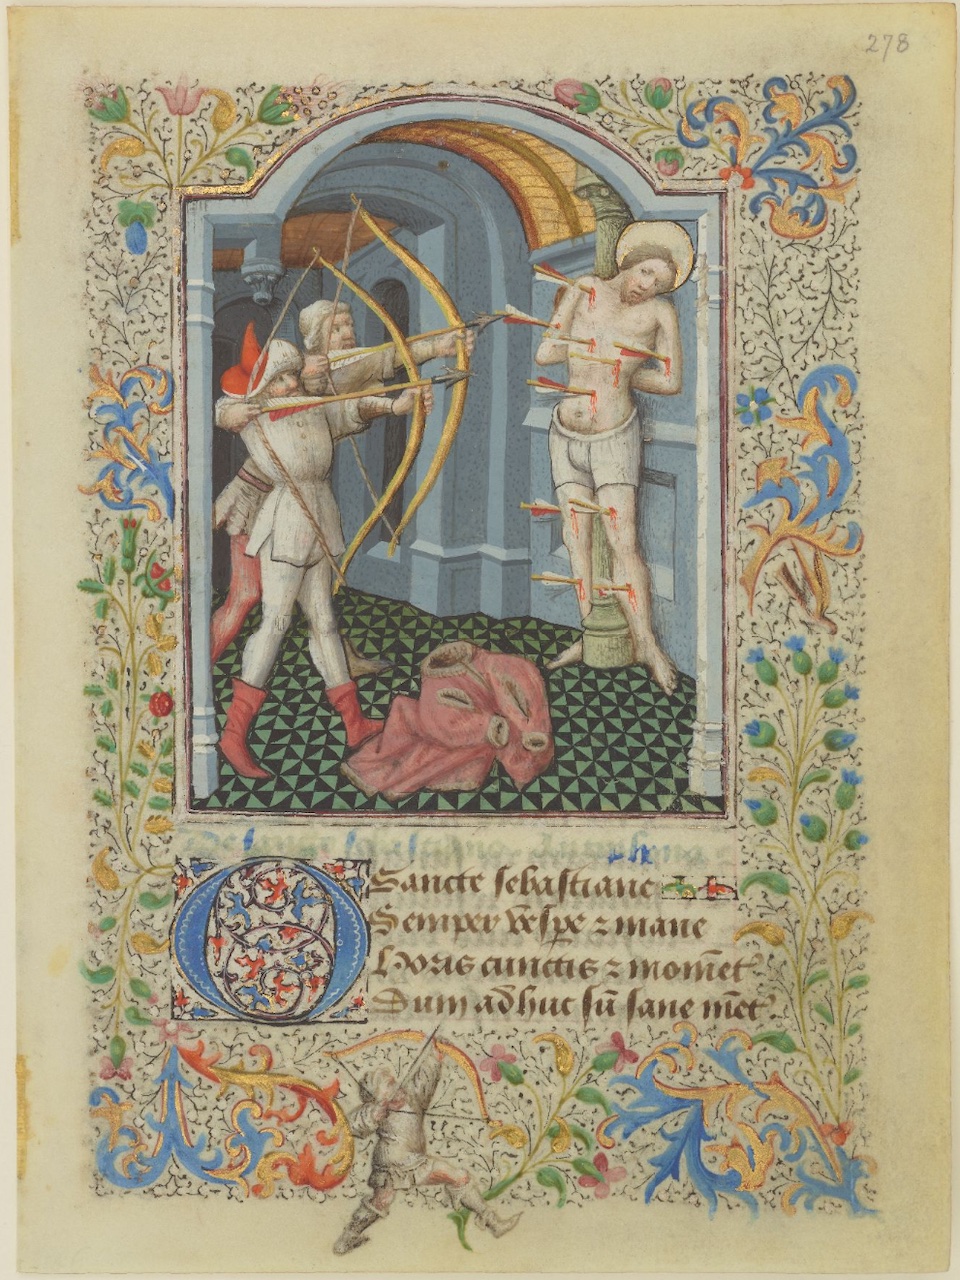 278
O Sancte sebastiane
Semper vesꝑe ⁊ mane
horis cunctis ⁊ momētꝫ
Dum adhuc sū sane mētꝫ.